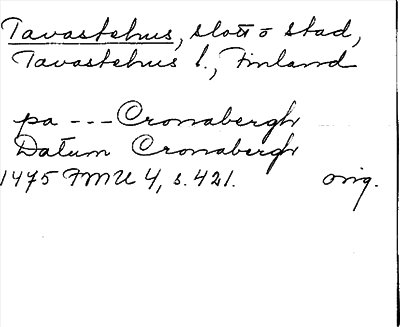 Tavastehus, slott o stad,
Tavastehus l., Finland
pa --- Cronabergh
Datum Cronabergh
1475 FMU 4, s. 421. orig.